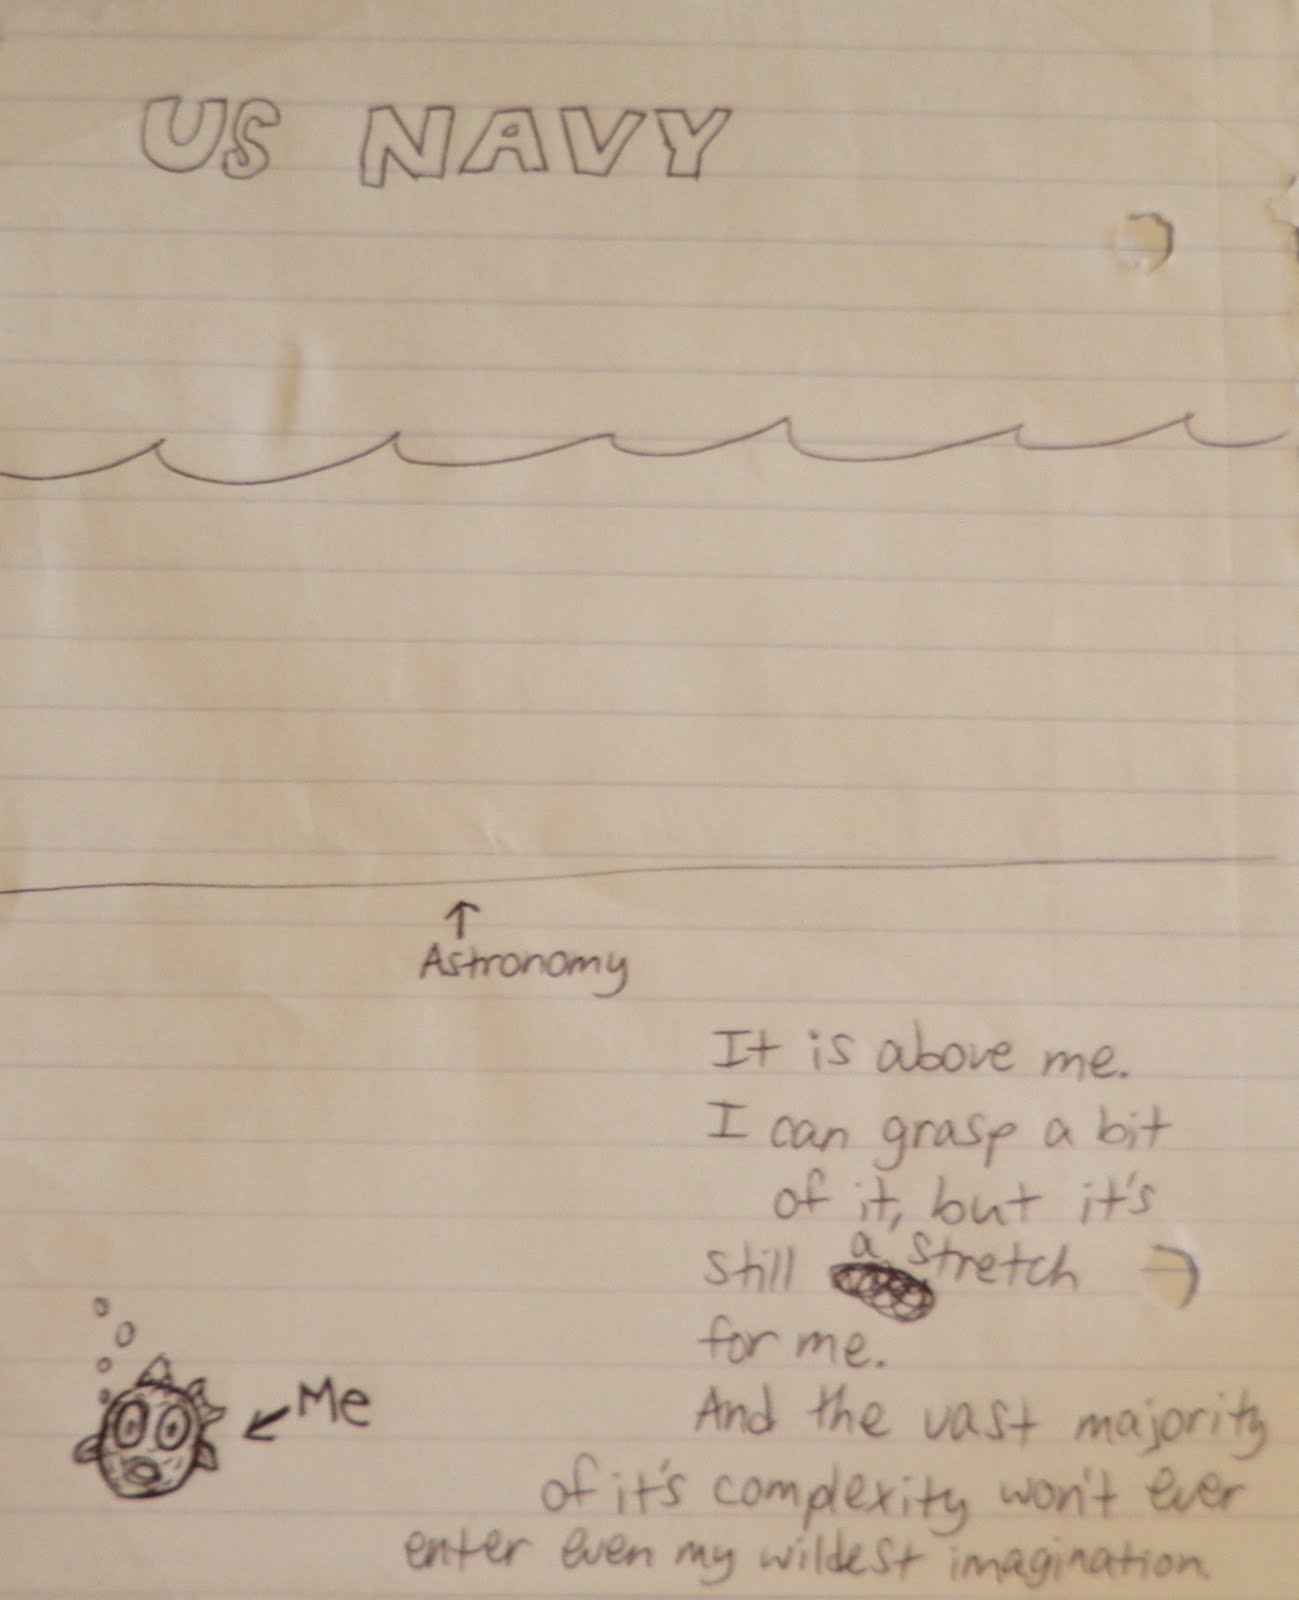 US NAVY
Astronomy
It is above me.
I can grasp a bit
of it, but it's
still a stretch
for me.
Me
And the vast majority
of it's complexity won't ever
enter even my wildest imagination.